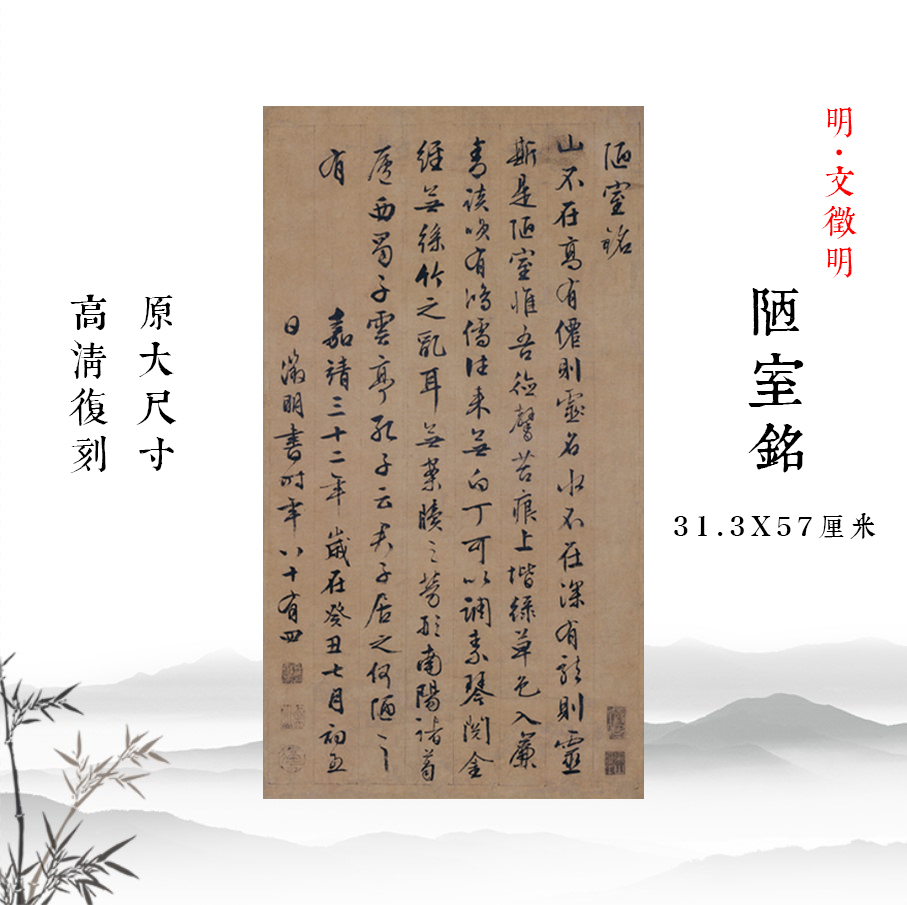 明·文徵明
陋室銘
31.3X57厘米
陋室銘
山不在高有僊則靈名水不在深有龍則靈
斯是陋室惟吾德馨苔痕上堦綠草色入簾
青談咲有鴻儒往來無白丁可以調素琴閱金
經無絲竹之亂耳無案牘之勞形南陽諸葛
廬西蜀子雲亭孔子云君子居之何陋之
有
嘉靖三十二年歲在癸丑七月初五
日徵明書時年八十有四
原大尺寸
高清復刻